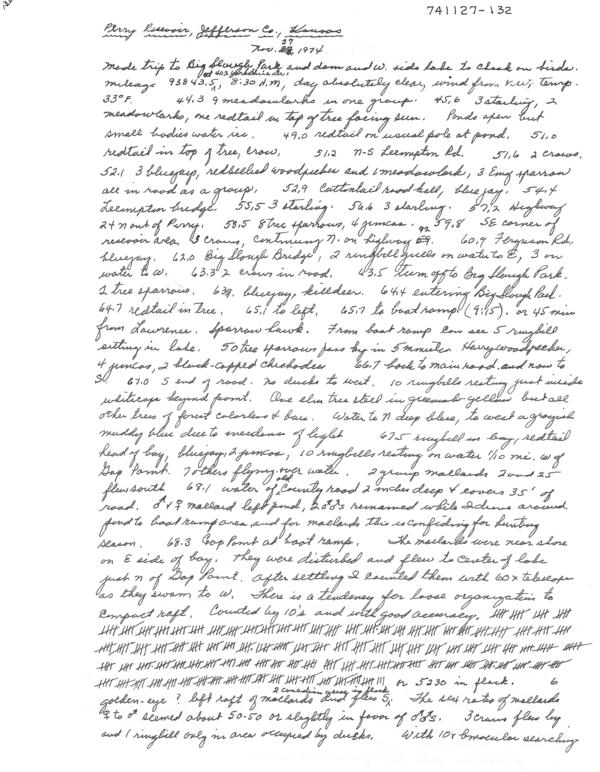 741127-132
Perry Resevoir, Jefferson Co., Kansas
Nov. 27, 1974
made trip to Big Slough Park and dam and W. side lake to check on birds.
mileage 93843.5, at 402 Yorkshire Dr. 8:30 A.M, day absolutely clear, wind from N.W., temp.
33°F. 44.3 9 meadowlarks in one group. 45.6 3 starling, 2
meadowlarks, one redtail in top of tree facing sun. Ponds open but
small bodies water ice. 49.0 redtail on usual pole at pond. 51.0
redtail in top of tree, crow. 51.2 N-S Lecompton Rd. 51.6 2 crows.
52.1 3 bluejay, redbellied woodpecker and 1 meadowlark, 3 Eng sparrow
all in road as a group. 52.9 Cottontail road kill, bluejay. 54.4
Lecompton bridge. 55.5 3 starling. 56.6 3 starling. 57.2 Highway
24 N out of Perry. 58.5 8 tree sparrows, 4 juncos. 59.8 SE corner of
resevoir area, 3 crows, continuing N. on highway 92. 60.9 Ferguson Rd,
bluejay. 62.0 Big Slough Bridge, 2 ringbill gulls on water to E, 3 on
water to W. 63.3 2 crows in road. 63.5 turn off to Big Slough Park.
2 tree sparrows. bluejay, killdeer. 64.4 entering Big Slough Park.
64.7 redtail in tree. 65.1 to left, 65.7 to boat ramp (9:15). or 45 min
from Lawrence. Sparrow hawk. From boat ramp can see 5 ringbill
sitting in lake. 50 tree sparrows pass by in 5 minutes Hairy woodpecker,
4 juncos, 2 black-capped chickadees 66.7 back to main road and now to
S. 67.0 S end of road. no ducks to west. 10 ringbills resting just inside
whitecaps beyond point. One elm tree still in greenish yellow but all
other trees of forest colorless & bare. Water to N deep blue, to west a grayish
muddy blue due to incidence of light 67.5 ringbill in bay, redtail
head of bay, bluejay, 2 juncos, 10 ringbills resting on water 1/10 mi. W of
Gap Point. 7 others flying over water. 2 group mallards 2 and 25
flew south 68.1 water of old County road 2 inches deep & covers 35' of
road. ♂ & ♀ mallard left pond, 2 ♂♂s remained while I drove around
pond to boat ramp area, and for mallards this is confiding for hunting
season. 68.3 Gap Point at boat ramp. The mallards were near shore
on E side of bay. They were disturbed and flew to center of lake
just N of Gap Point. After settling I counted them with 60x telescope
as they swam to W. There is a tendency for loose organization to
compact raft. Counted by 10's and with good accuracy.
or 5230 in flock. 6
golden-eye ? left raft of mallards and flew S. 2 canadian geese in flock The sex ratio of mallards
♀ to ♂ seemed about 50-50 or slightly in favor of ♂♂s. 3 crows flew by
and 1 ringbill only in area occupied by ducks. With 10x binocular searching